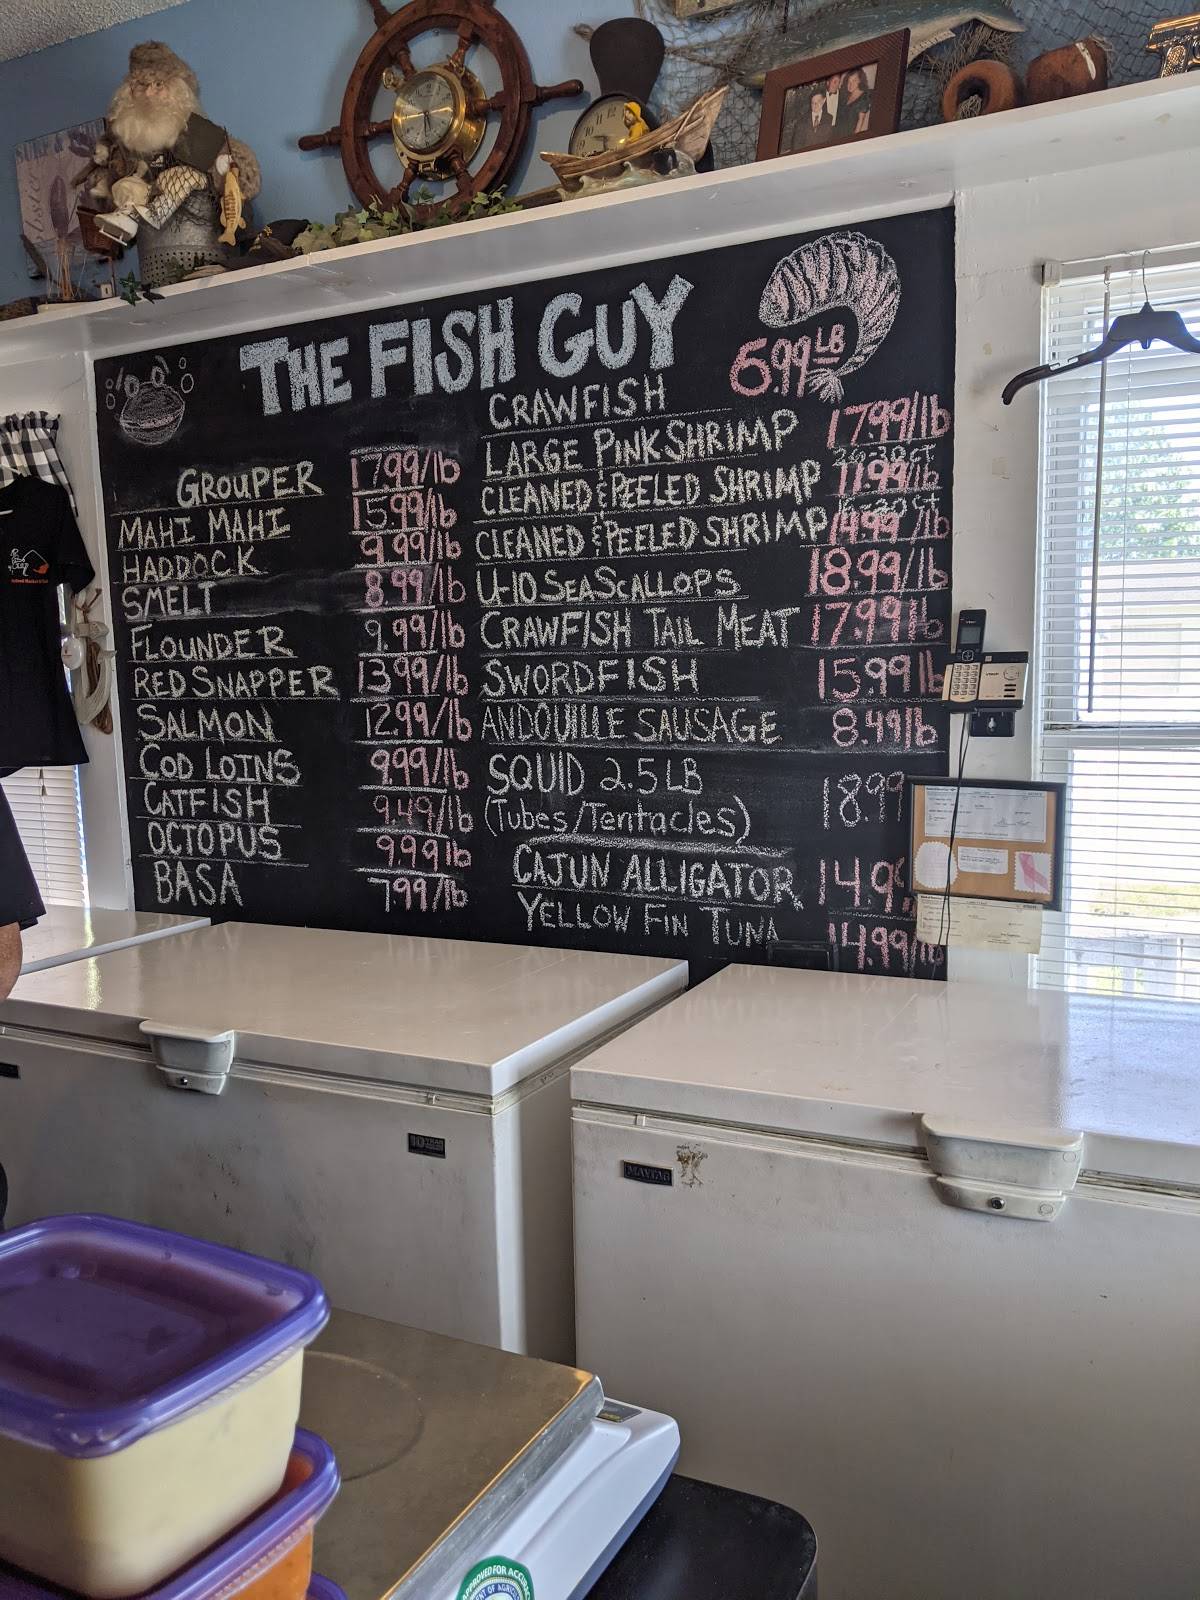 THE FISH GUY
GROUPER 17.99/lb
MAHI MAHI 15.99/lb
HADDOCK 9.99/lb
SMELT 8.99/lb
FLOUNDER 9.99/lb
RED SNAPPER 13.99/lb
SALMON 12.99/lb
COD LOINS 9.99/lb
CATFISH 9.49/lb
OCTOPUS 9.99lb
BASA 7.99/lb
CRAWFISH 6.99 LB
LARGE PINK SHRIMP 17.99/lb
CLEANED & PEELED SHRIMP 11.99/lb
CLEANED & PEELED SHRIMP 14.99/lb
U-10 SEA SCALLOPS 18.99/lb
CRAWFISH TAIL MEAT 17.99lb
SWORDFISH 15.99lb
ANDOUILLE SAUSAGE 8.49lb
SQUID 2.5 LB 18.99
(Tubes/Tentacles)
CAJUN ALLIGATOR 14.99
YELLOW FIN TUNA 14.99/lb
10 YEAR
MAYTAG
APPROVED FOR ACCURACY